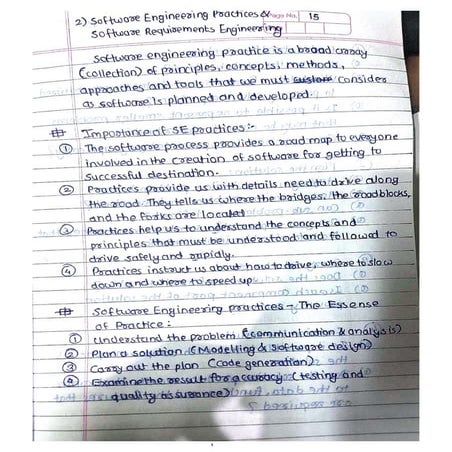 2) Software Engineering Practices & Page No. 15
Software Requirements Engineering
Software engineering practice is a broad array
(collection) of principles, concepts, methods,
approaches and tools that we must consider
as software is planned and developed.
Importance of SE practices:-
① The software process provides a road map to everyone
involved in the creation of software for getting to
successful destination.
② Practices provide us with details need to drive along
the road. They tell us where the bridges, the roadblocks,
and the forks are located
③ Practices help us to understand the concepts and
principles that must be understood and followed to
drive safely and rapidly.
④ Practices instruct us about how to drive, where to slow
down and where to speed up.
Software Engineering practices - The Essense
of Practice:
① Understand the problem (communication & analysis)
② Plan a solution (Modelling & software design)
③ Carry out the plan (code generation)
④ Examine the result for accuracy (testing and
quality assurance)